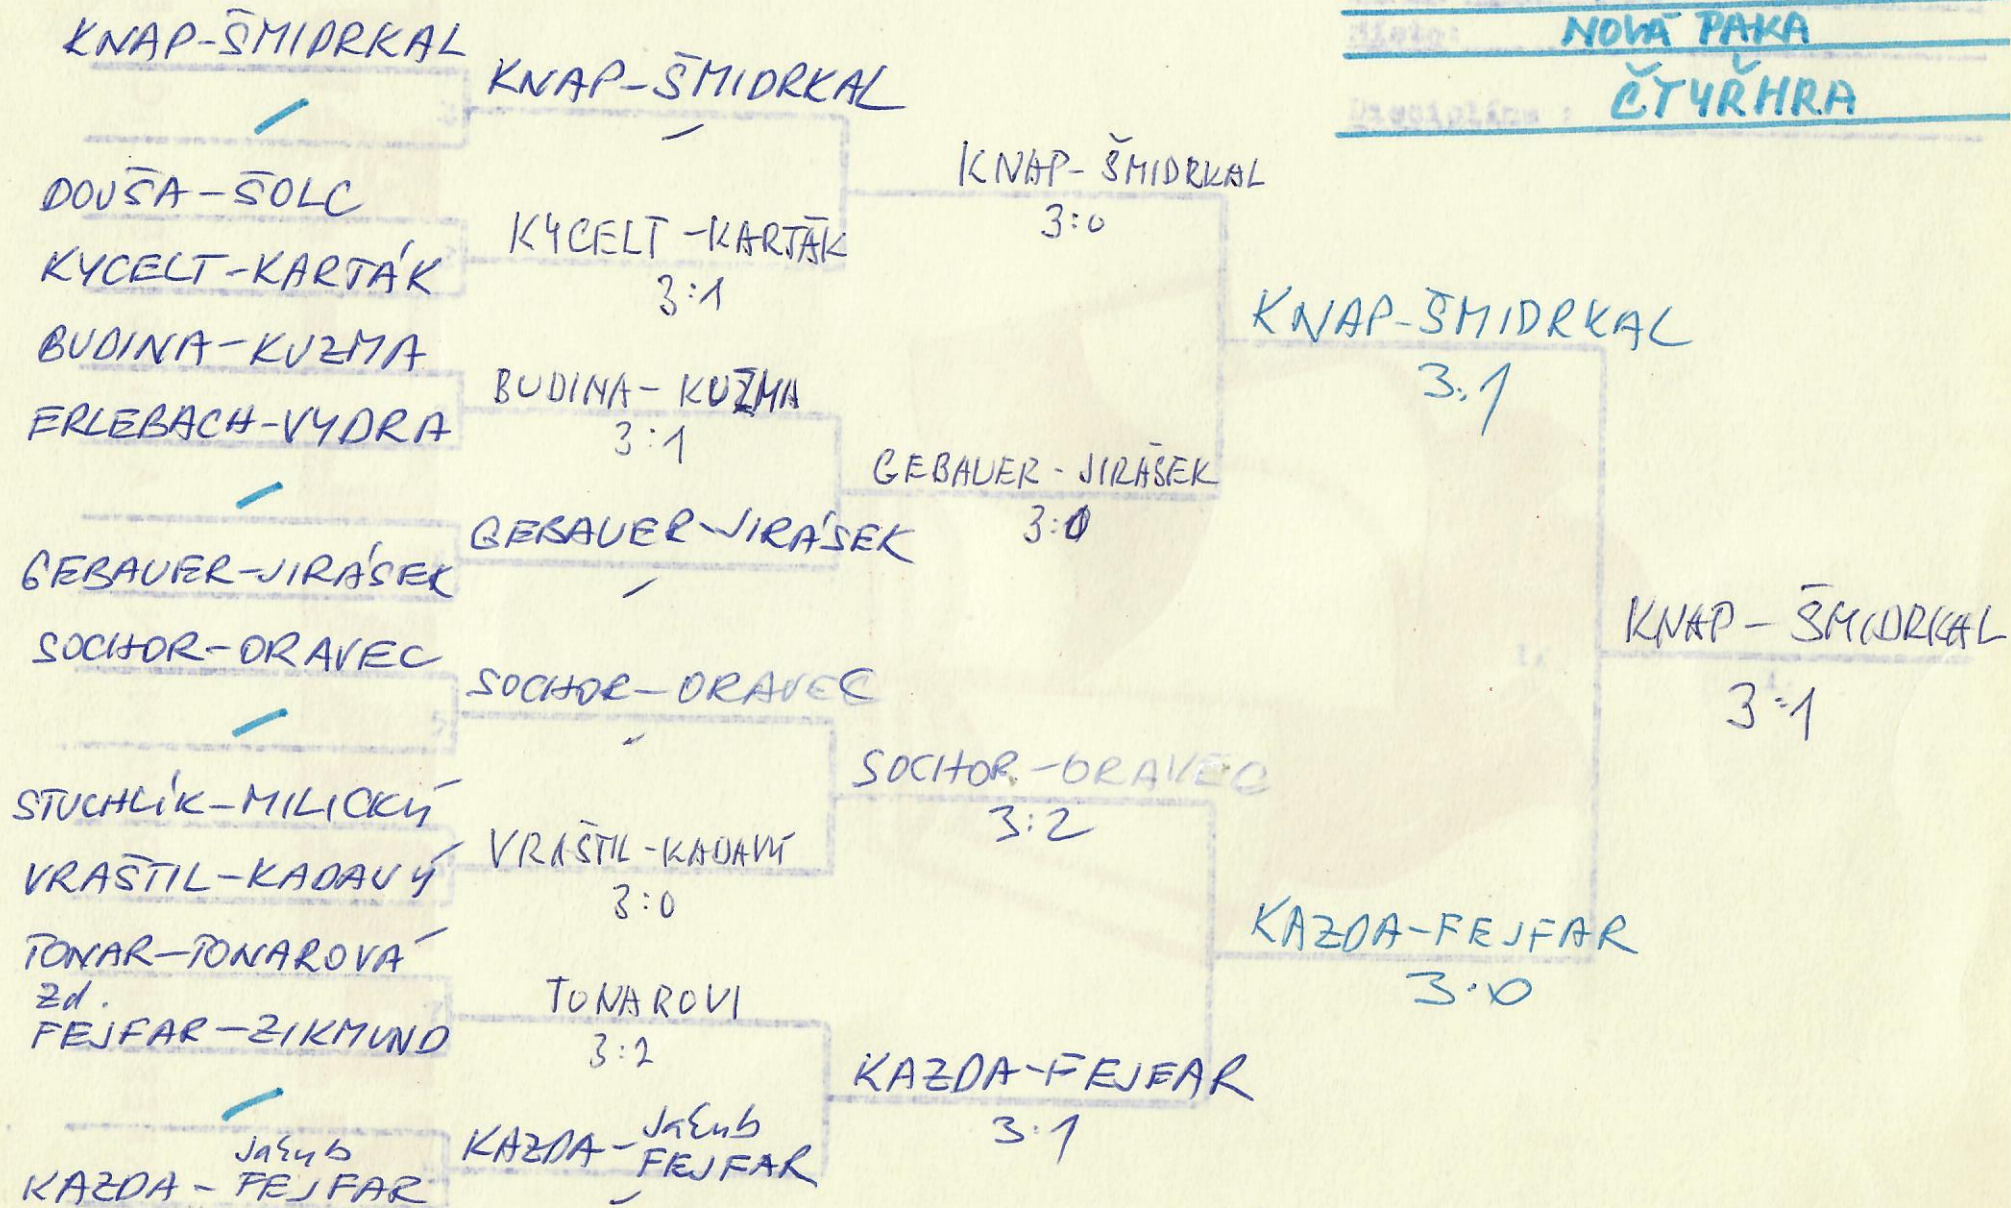 NOVÁ PAKA
ČTYŘHRA
KNAP-ŠMIDRKAL
DOUŠA-ŠOLC
KYCELT-KARTÁK
BUDINA-KUZMA
ERLEBACH-VYDRA
GEBAUER-JIRÁSEK
SOCHOR-ORAVEC
STUCHLÍK-MILICKÝ
VRAŠTIL-KADAVÝ
TONAR-TONAROVÁ
Zd.
FEJFAR-ZIKMUND
Jakub
KAZDA-FEJFAR
KNAP-ŠMIDRKAL
KYCELT-KARTÁK
3:1
BUDINA-KUZMA
3:1
GEBAUER-JIRÁSEK
SOCHOR-ORAVEC
VRAŠTIL-KADAVÝ
3:0
TONAROVI
3:2
Jakub
KAZDA-FEJFAR
KNAP-ŠMIDRKAL
3:0
GEBAUER-JIRÁŠEK
SOCHOR-ORAVEC
3:2
KAZDA-FEJFAR
3:1
KNAP-ŠMIDRKAL
3:1
KAZDA-FEJFAR
3:0
KNAP-ŠMIDRKAL
3:1